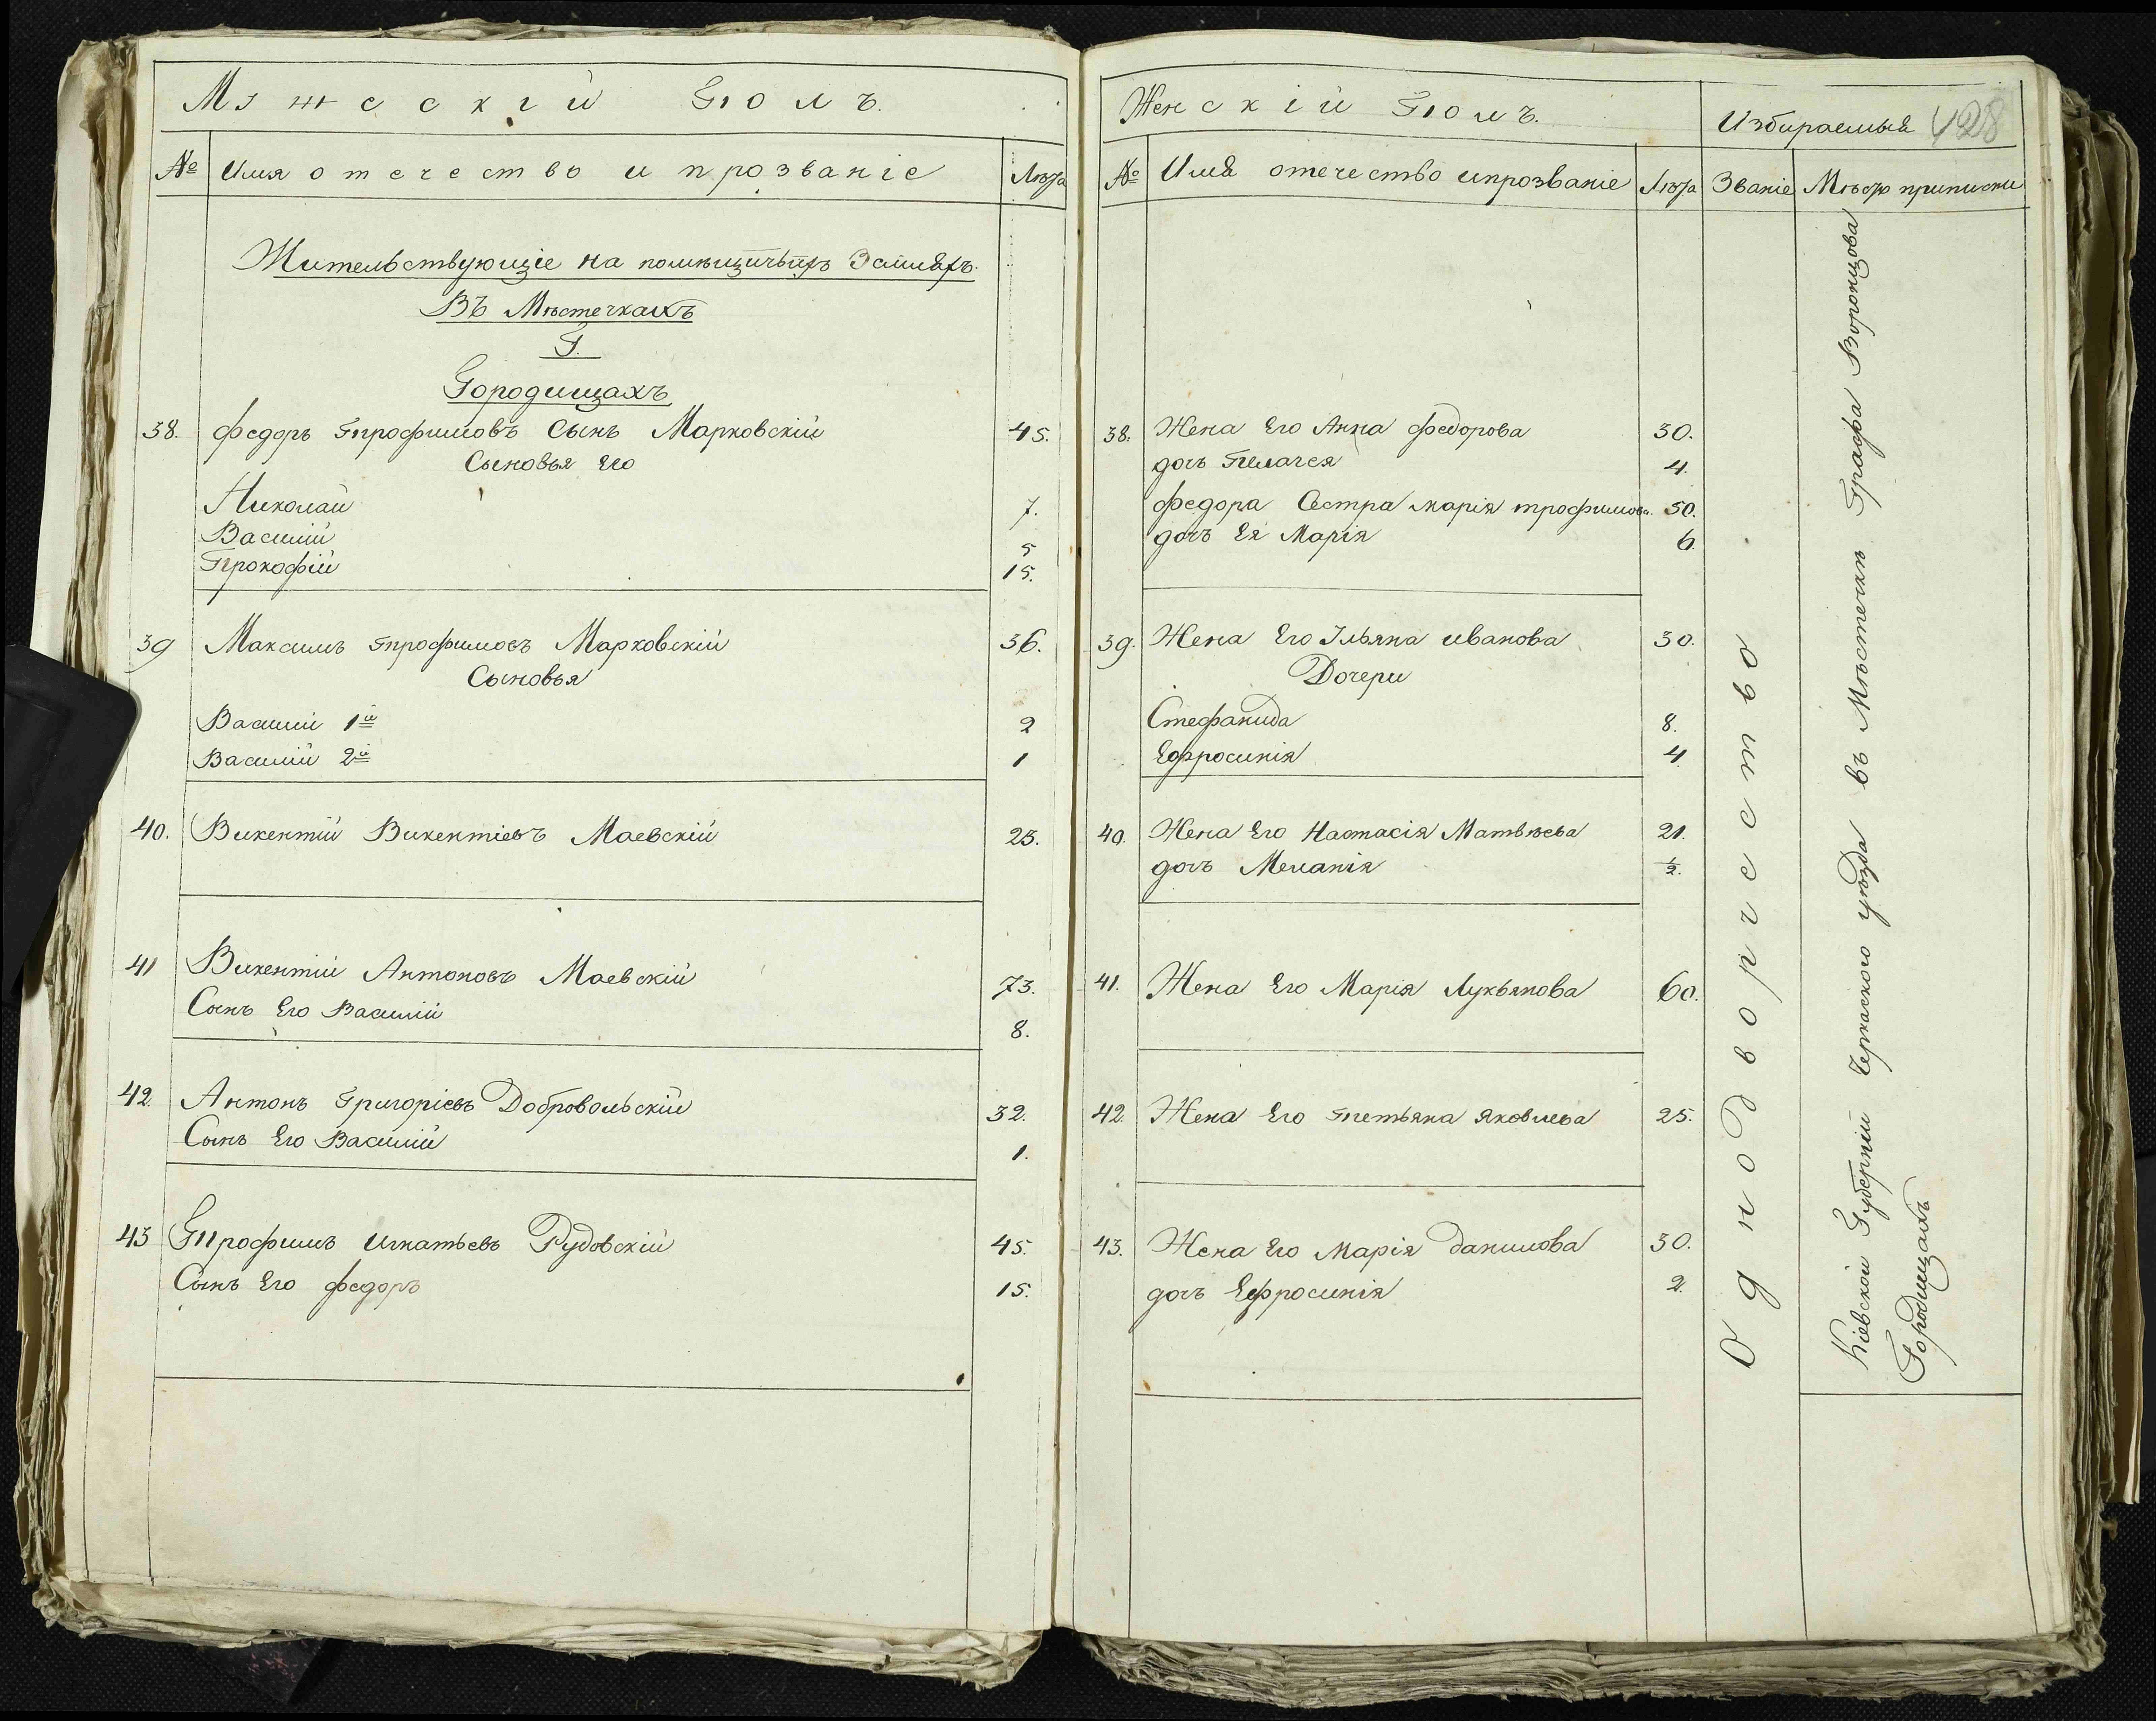 Мужескій Полъ.
№ Имя отечество и прозваніе Лѣта
Жительствующіе на помѣщичьихъ Земляхъ.
Въ Мѣстечкахъ
Городищахъ
38. Федоръ Трофимовъ Сынъ Марковскій 45.
Сыновья Его
Николай 7.
Василій 5
Прокофій 15.
39 Максимъ Трофимовъ Марковскій 36.
Сыновья
Василій 1й 2
Василій 2й 1
40. Викентій Викентіевъ Маевскій 25.
41 Викентій Антоновъ Маевскій 73.
Сынъ Его Василій 8.
42. Антонъ Григоріевъ Добровольскій 32.
Сынъ Его Василій 1.
43 Трофимъ Игнатьевъ Рудовскій 45.
Сынъ Его Федоръ 15.
Женскій Полъ. Избираемыя 428
№ Имя отечество ипрозваніе Лѣта Званіе Мѣсто приписки
38. Жена Его Анна Федорова 30.
дочь Пелагея 4.
Федора Сестра Марія трофимова. 50.
дочь Ея Марія 6.
39. Жена Его Ульяна иванова 30.
Дочери
Стефанида 8.
Ефросинія 4
40. Жена Его Настасія Матвѣева 21.
дочь Меланія 1/2.
41. Жена Его Марія Лукьянова 60.
42. Жена Его Тетьяна Яковлева 25.
43. Жена Его Марія данилова 30.
дочь Ефросинія 2.
Однодворчество
Кіевской Губерніи Черкаского уѣзда въ Мѣстечкѣ Графа Воронцова
Городищахъ